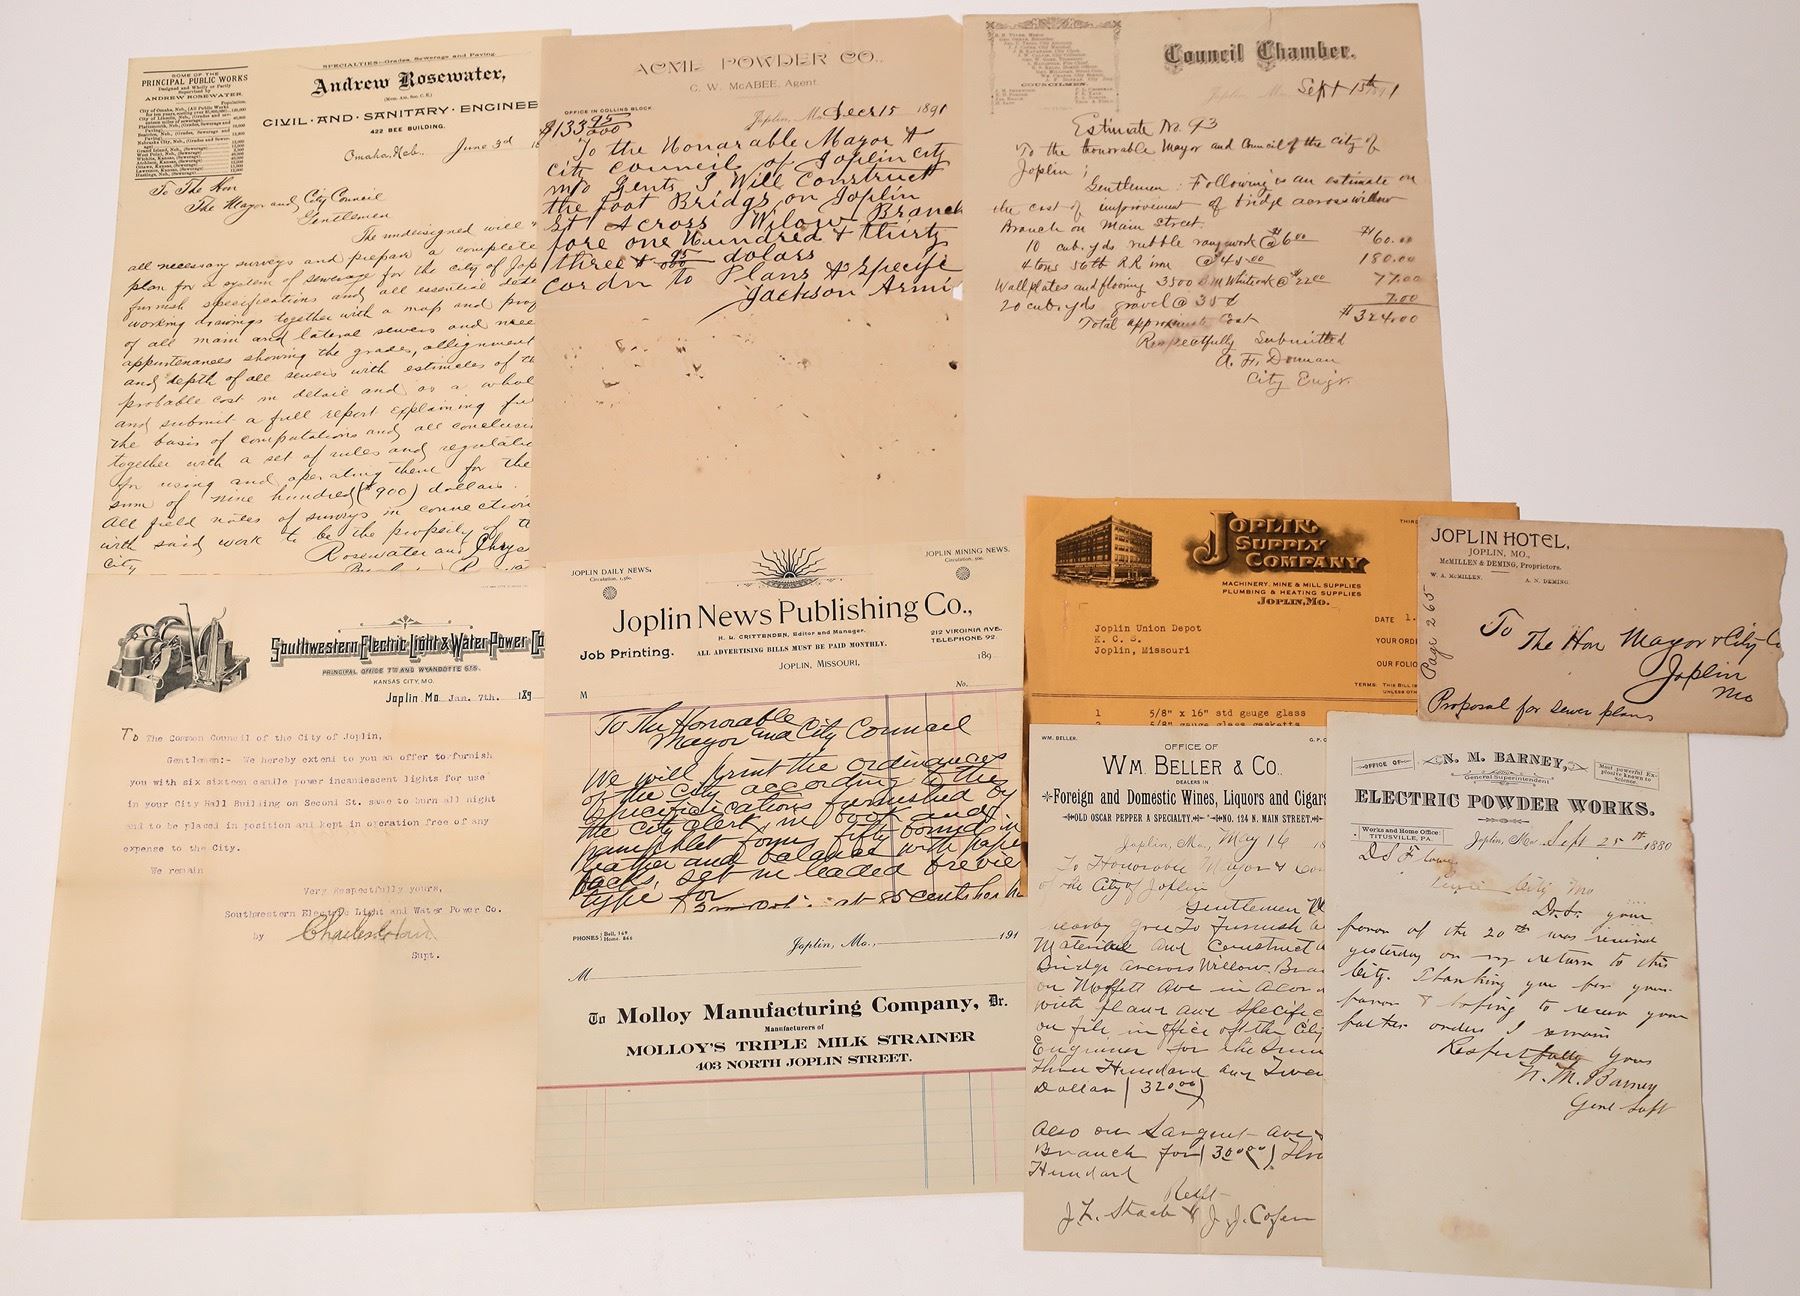 SPECIALTIES—Grades, Sewerage and Paving.
SOME OF THE
PRINCIPAL PUBLIC WORKS
Designed and Wholly or Partly
Supervised by
ANDREW ROSEWATER.
Population.
Andrew Rosewater,
(Mem. Am. Soc. C. E.)
CIVIL · AND · SANITARY · ENGINEE
422 BEE BUILDING.
Omaha, Neb., June 3d 18
To The Hon
The Mayor and City Council
Gentlemen
The undersigned will
all necessary surveys and prepare a complete
plan for a system of sewerage for the city of Jop
furnish specifications and all essential
working drawings together with a map and prof
of all main and lateral sewers and
appurtenances showing the grades, allignment
and depth of all sewers with estimates of th
probable cost in detail and as a whol
and submit a full report explaining fu
the basis of computations and all conclusi
together with a set of rules and regulatio
for using and operating them for the
sum of nine hundred ($900) dollars.
All field notes of surveys in connection
with said work to be the property of th
City
Rosewater and Chrys
ACME POWDER CO.,
C. W. McABEE, Agent.
OFFICE IN COLLINS BLOCK.
Joplin, Mo. Decr 15 1891
$133 95/000
To the Honarable Mayor &
City Council of Joplin City
m/o Gents I Will Construct
the foot Bridg on Joplin
St Across Wilow Branch
fore one Hundred & thirty
three & 95/000 dolars
Cordn to Plans & Specific
Jackson Armi
Council Chamber.
COUNCILMEN
Joplin, Mo. Sept 15th 1891
Estimate No. 93
To the honorable Mayor and Council of the City of
Joplin;
Gentlemen: Following is an estimate on
the cost of improvement of bridge across willow
Branch on Main Street.
10 cub. yds rubble rangwork @ $6 00 $60.00
4 tons 56 lb RR iron @ 45 00 180.00
Wall plates and flooring 3500 B.M White oak @ $22 00 77.00
20 cub. yds gravel @ 35¢ 7.00
Total approximate Cost $324.00
Respectfully Submitted
A. F. Donnan
City Engr.
Southwestern Electric Light & Water Power Co
PRINCIPAL OFFICE 7TH AND WYANDOTTE STS.
KANSAS CITY, MO.
Joplin Mo. Jan. 7th. 189
To The Common Council of the City of Joplin,
Gentlemen:- We hereby extend to you an offer to furnish
you with six sixteen candle power incandescent lights for use
in your City Hall Building on Second St. same to burn all night
and to be placed in position and kept in operation free of any
expense to the City.
We remain
Very Respectfully yours,
Southwestern Electric Light and Water Power Co.
by
Supt.
JOPLIN DAILY NEWS,
Circulation, 1,560.
JOPLIN MINING NEWS,
Circulation, 500.
Joplin News Publishing Co.,
H. U. CRITTENDEN, Editor and Manager.
212 VIRGINIA AVE.
TELEPHONE 92.
Job Printing.
ALL ADVERTISING BILLS MUST BE PAID MONTHLY.
JOPLIN, MISSOURI, 189
No.
M
To The Honorable
Mayor and City Council
We will print the ordinances
of the city according to the
specifications furnished by
the city clerk, in book and
pamphlet form, fifty bound in
leather and balance with paper
backs, set in leaded brevier
type for
at 85 cents
PHONES Bell, 169
Home, 866
Joplin, Mo., 191
M
To Molloy Manufacturing Company, Dr.
Manufacturers of
MOLLOY'S TRIPLE MILK STRAINER
403 NORTH JOPLIN STREET.
JOPLIN
SUPPLY
COMPANY
THIRD
MACHINERY, MINE & MILL SUPPLIES
PLUMBING & HEATING SUPPLIES
JOPLIN, MO.
Joplin Union Depot
K. C. S.
Joplin, Missouri
DATE 1.
YOUR ORDE
OUR FOLIO
TERMS: THIS BILL IS
UNLESS OTH
1 5/8" x 16" std gauge glass
2 5/8" gauge glass gaskets
JOPLIN HOTEL,
JOPLIN, MO.,
McMILLEN & DEMING, Proprietors.
W. A. McMILLEN.
A. N. DEMING.
Page 265
To The Hon Mayor & City Co
Joplin
Mo
Proposal for sewer plans
WM. BELLER.
OFFICE OF
WM. BELLER & CO.
DEALERS IN
Foreign and Domestic Wines, Liquors and Cigars
OLD OSCAR PEPPER A SPECIALTY. NO. 124 N. MAIN STREET.
Joplin, Mo., May 16 18
To Honorable Mayor & Cou
of the City of Joplin
Gentlemen
hearby gree To Furnish
Material and Construct
Bridge ancros Willow. Bra
on Moffett Ave in acor
with plans and Specific
on file in office of the City
Engineer for the Sum
Three Hundard and Twen
Dollars (320 00)
Also on Sargent ave
Branch for (300 00) Thre
Hundard
Respt
J. L. Staab & J. J. Cofer
OFFICE OF
N. M. BARNEY,
General Superintendent
Most powerful Ex-
plosive known to
Science.
ELECTRIC POWDER WORKS.
Works and Home Office:
TITUSVILLE, PA
Joplin, Mo. Sept 25th 1880
City Mo
Dr. Sr. your
favor of the 20th was received
yesterday on my return to this
City. Thanking you for your
favor & hoping to receive your
further orders I remain
Respectfully Yours
N. M. Barney
Genl Supt